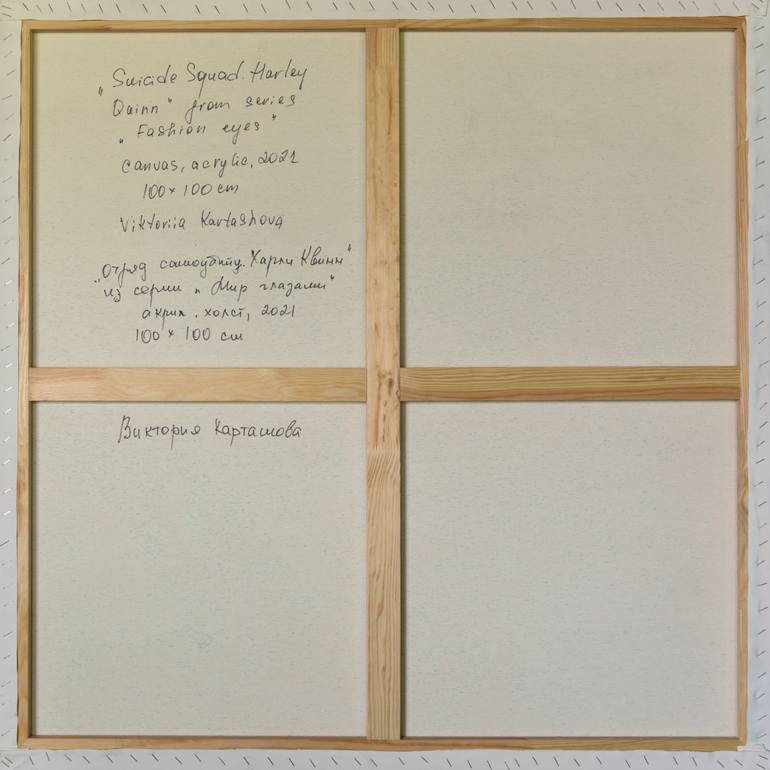 „Suicide Squad. Harley
Quinn" from series
„Fashion eyes"
canvas, acrylic, 2021
100 x 100 cm
Viktoriia Kartashova
„Отряд самоубийц. Харли Квинн"
из серии „Мир глазами"
акрил. холст, 2021
100 x 100 см
Виктория Карташова